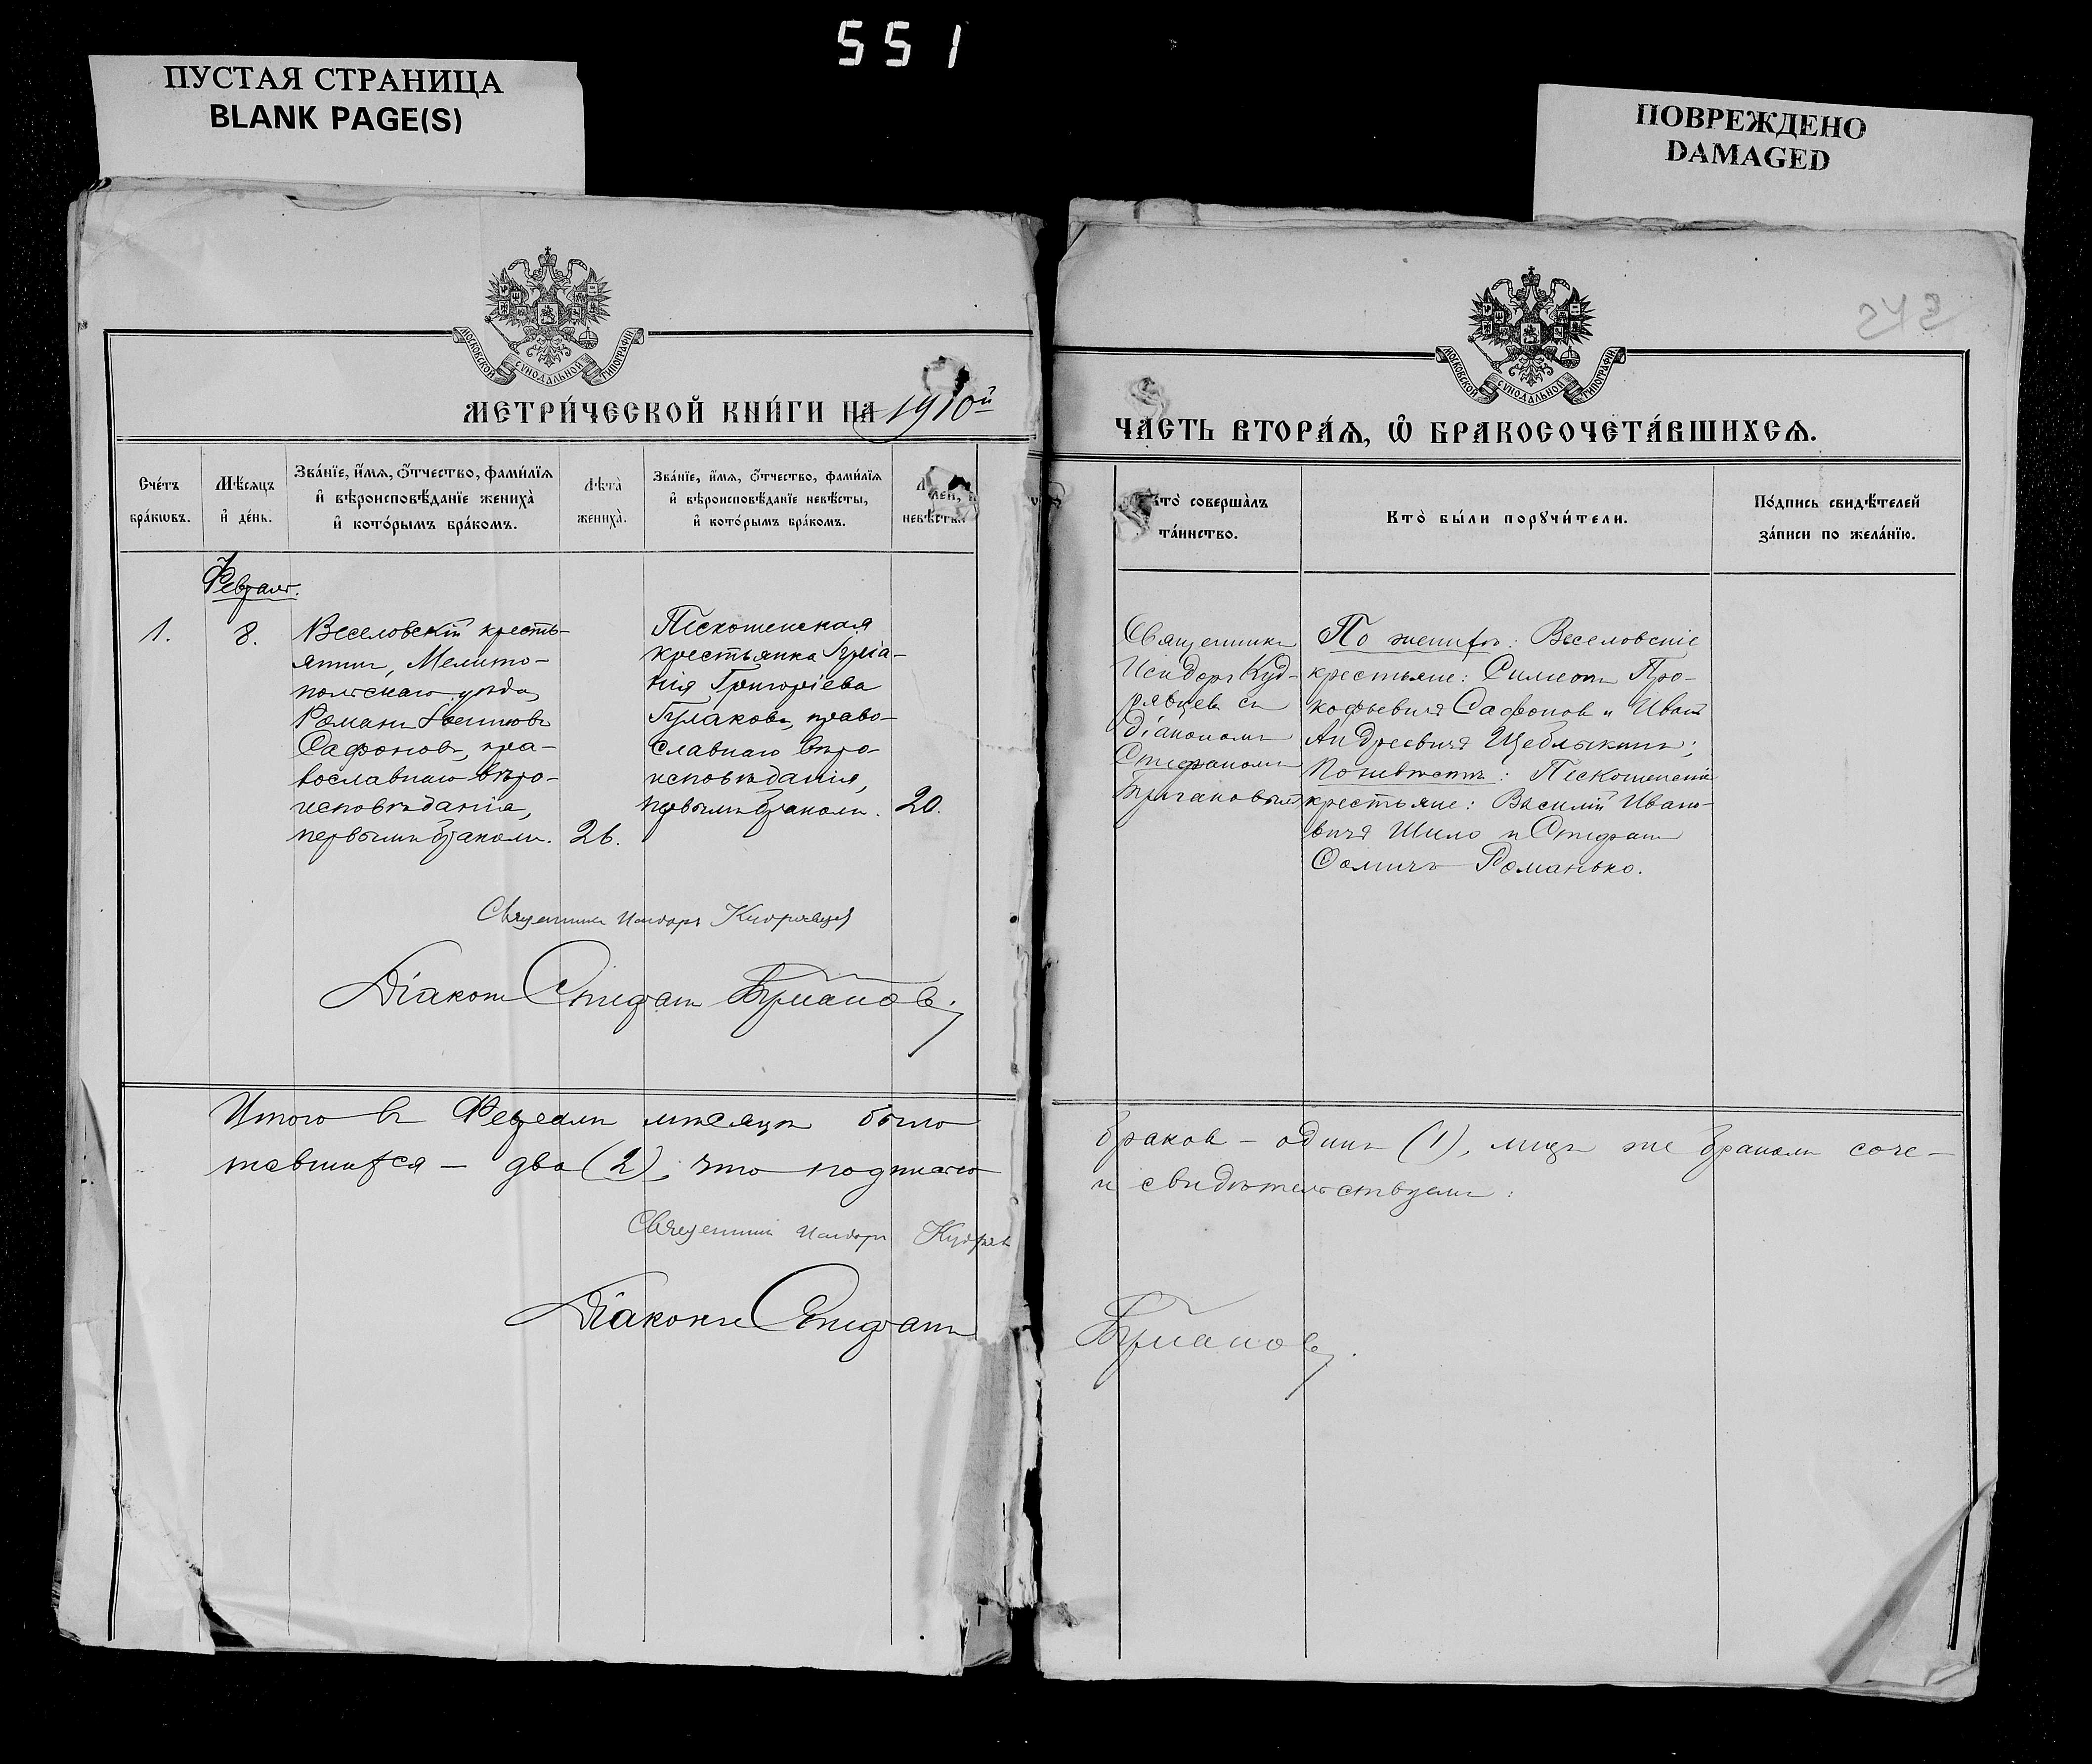 551
ПУСТАЯ СТРАНИЦА
BLANK PAGE(S)
ПОВРЕЖДЕНО
DAMAGED
МОСКОВСКОЙ СѴНОДАЛЬНОЙ ТИПОГРАФІИ
МЕТРИ́ЧЕСКОЙ КНИ́ГИ НА 1910й
Сче́тъ бра́кѡвъ.
Мѣ́сяцъ и҆ де́нь.
Зва́нїе, и҆́мя, ѻ҆́тчество, фами́лїя
и҆ вѣроисповѣ́данїе жениха̀
и҆ кото́рымъ бра́комъ.
Лѣта̀ жениха̀.
Зва́нїе, и҆́мя, ѻ҆́тчество, фами́лїя
и҆ вѣроисповѣ́данїе невѣ́сты,
и҆ кото́рымъ бра́комъ.
невѣ́сты
Февраль.
1.
8.
Веселовскій кресть-
янинъ, Мелито-
польскаго уѣзда,
Романъ
Сафоновъ, пра-
вославнаго вѣро-
исповѣданія,
первымъ бракомъ.
26.
Пескошенская
крестьянка Іуліа-
нія Григоріева
Гулакова, право-
славнаго вѣро-
исповѣданія,
первымъ бракомъ.
20.
Священникъ Исидоръ Кудрявцевъ
Діаконъ Стефанъ
Итого въ Февралѣ мѣсяцѣ было
тавшихся – два (2), что подписью
Священникъ Исидоръ Кудряв
Діаконъ Стефанъ
243
МОСКОВСКОЙ СѴНОДАЛЬНОЙ ТИПОГРАФІИ
ЧА́СТЬ ВТОРА́Я, Ѽ БРАКОСОЧЕТА́ВШИХСЯ.
Кто̀ соверша̀лъ
та́инство.
Кто̀ бы́ли порꙋчи́тели.
По́дпись свидѣ́телей
за́писи по жела́нїю.
Священникъ
Исидоръ Куд-
рявцевъ съ
діакономъ
Стефаномъ
По женихѣ: Веселовскіе
крестьяне: Симеонъ Про-
кофьевичъ Сафоновъ и Иванъ
Андреевичъ Щеблыкинъ;
По невѣстѣ: Пескошенскіе
крестьяне: Василій Ивано-
вичъ Шило и Стефанъ
Ѳомичъ Романько.
браковъ – одинъ (1), лицъ же бракомъ соче-
и свидѣтельствуемъ: